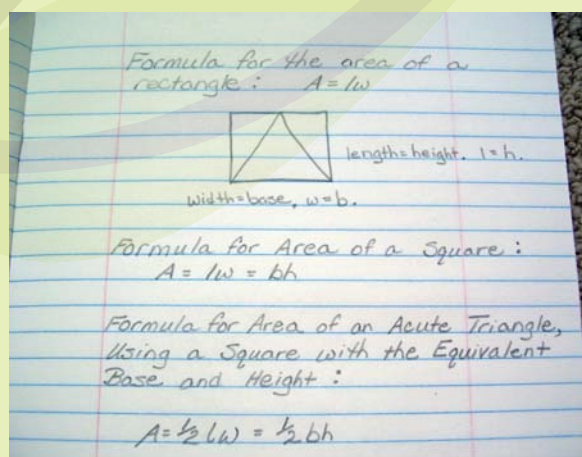 Formula for the area of a
rectangle: A = lw
length = height. l = h.
width = base, w = b.
Formula for Area of a Square:
A = lw = bh
Formula for Area of an Acute Triangle,
Using a Square with the Equivalent
Base and Height:
A = 1/2 lw = 1/2 bh